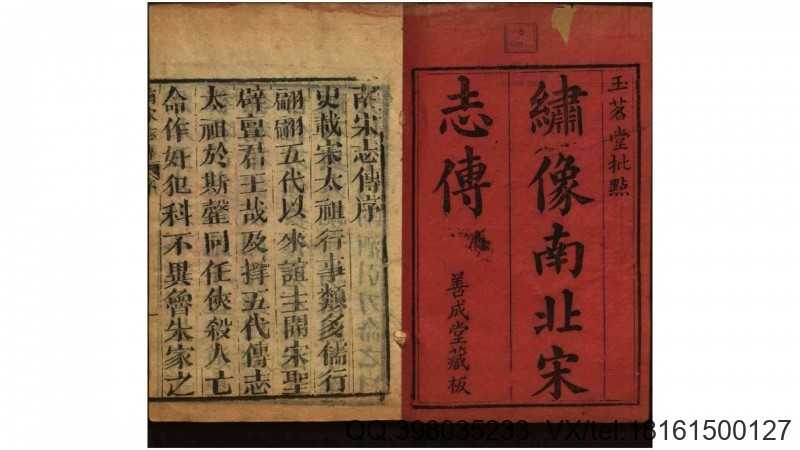 玉茗堂批點
繡像南北宋
志傳
善成堂藏板
南宋志傳序
史載宋太祖行事類多儒行
翩翩五代以來誼主開宋聖
辟亶君王哉及擇五代傳志
太祖於斯蓋同任俠殺人亡
命作奸犯科不異魯朱家之
QQ:398035233 VX/tel:18161500127